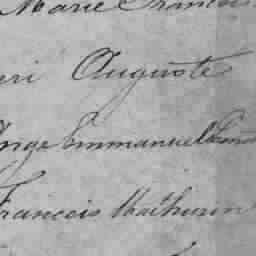 Marie Francois
eri Auguste
Ange Emmanuel
Francois Mathurin